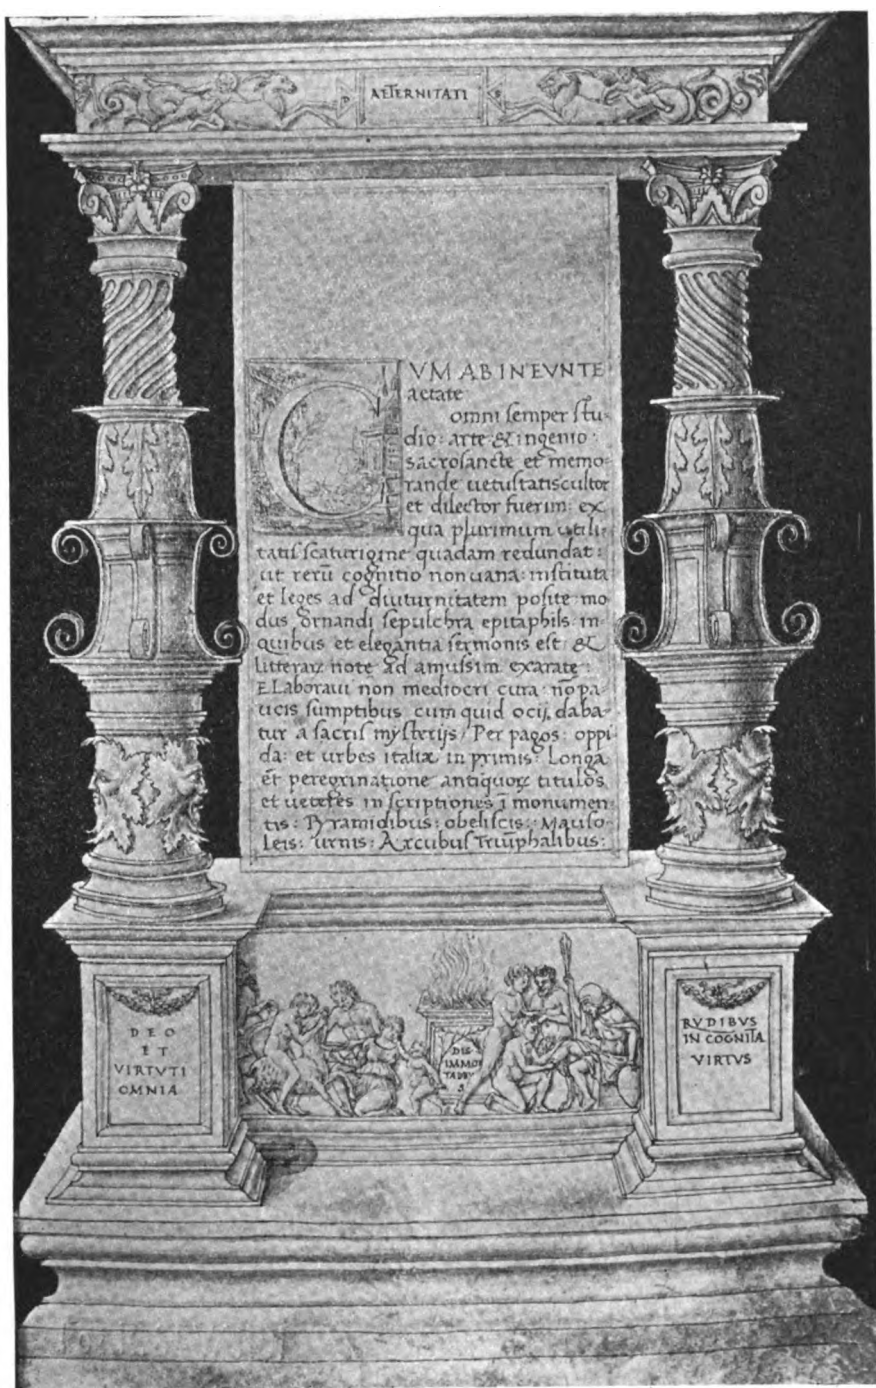 AETERNITATI
CVM AB INEVNTE
aetate
omni semper stu-
dio: arte & ingenio:
sacrosancte et memo-
rande uetustatiscultor
et dilector fuerim: ex
qua plurimum utili-
tatis scaturigine quadam redundat:
ut rerū cognitio nonuana: instituta
et leges ad diuturnitatem posite: mo
dus ornandi sepulchra epitaphijs: in
quibus et elegantia sermonis est &
litteraꝝ note ad amussim exarate:
ELaboraui non mediocri cura: nō pa
ucis sumptibus cum quid ocij, daba-
tur a sacris mysterijs: Per pagos: oppi
da: et urbes italiæ in primis: Longa
em̄ peregrinatione antiquoꝝ titulos
et ueteres inscriptiones ī monumen-
tis: Pyramidibus: obeliscis: Mauso-
Leis: urnis: Arcubus Triūphalibus:
DEO
ET
VIRTVTI
OMNIA
DIS
IMMOR
TALIBV
S
RVDIBVS
INCOGNITA
VIRTVS